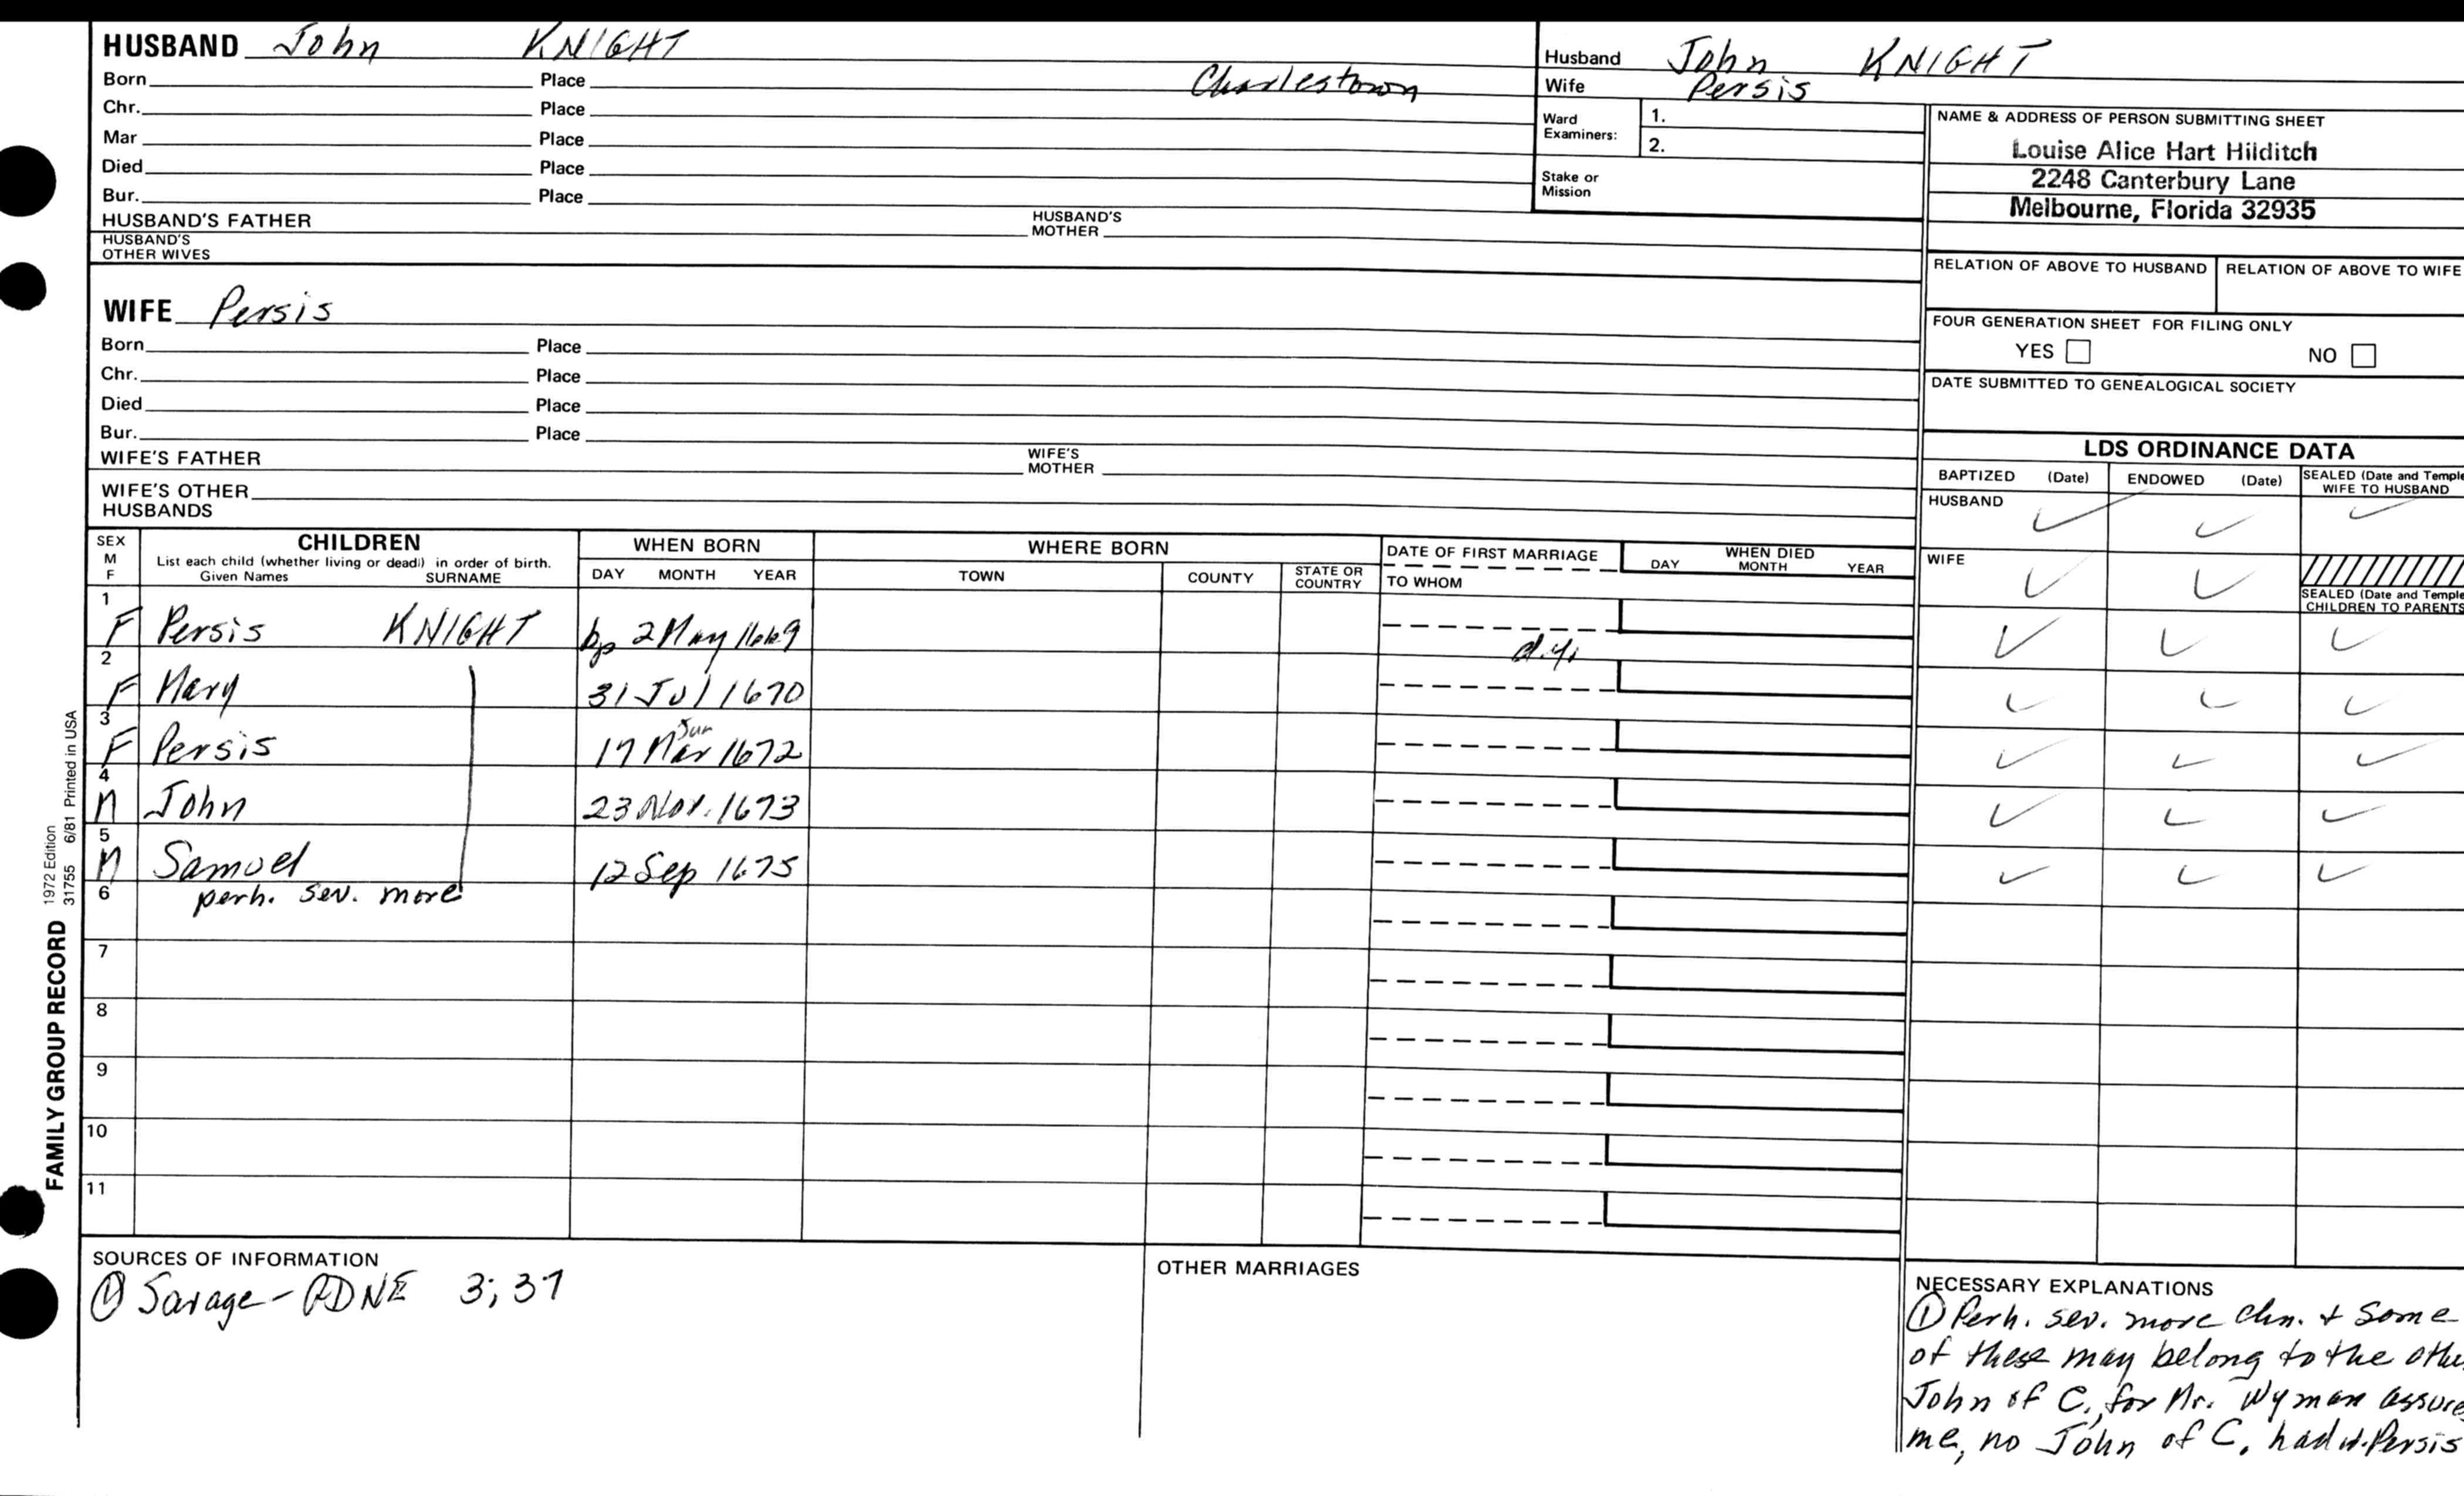 HUSBAND John KNIGHT
Born Place Charlestown
Chr. Place
Mar Place
Died Place
Bur. Place
HUSBAND'S FATHER HUSBAND'S MOTHER
HUSBAND'S OTHER WIVES
Husband John KNIGHT
Wife Persis
Ward Examiners: 1.
2.
Stake or Mission
NAME & ADDRESS OF PERSON SUBMITTING SHEET
Louise Alice Hart Hilditch
2248 Canterbury Lane
Melbourne, Florida 32935
RELATION OF ABOVE TO HUSBAND RELATION OF ABOVE TO WIFE
FOUR GENERATION SHEET FOR FILING ONLY
YES NO
DATE SUBMITTED TO GENEALOGICAL SOCIETY
WIFE Persis
Born Place
Chr. Place
Died Place
Bur. Place
WIFE'S FATHER WIFE'S MOTHER
WIFE'S OTHER HUSBANDS
LDS ORDINANCE DATA
BAPTIZED (Date) ENDOWED (Date) SEALED (Date and Temple
WIFE TO HUSBAND
HUSBAND
WIFE
SEALED (Date and Temple
CHILDREN TO PARENTS
SEX M F
CHILDREN
List each child (whether living or dead) in order of birth.
Given Names SURNAME
WHEN BORN
DAY MONTH YEAR
WHERE BORN
TOWN COUNTY STATE OR COUNTRY
DATE OF FIRST MARRIAGE
TO WHOM
WHEN DIED
DAY MONTH YEAR
1 F Persis KNIGHT bp 2 May 1669
d.y.
2 F Mary 31 Jul 1670
Jun
3 F Persis 17 Mar 1672
4 M John 23 Nov. 1673
5 M Samuel 12 Sep 1675
6 perh. sev. more
7
8
9
10
11
FAMILY GROUP RECORD 1972 Edition
31755 6/81 Printed in USA
SOURCES OF INFORMATION
① Savage - GDNE 3; 37
OTHER MARRIAGES
NECESSARY EXPLANATIONS
① Perh. sev. more chn. + some
of these may belong to the
John of C., for Mr. Wyman
me, no John of C. had w. Persis